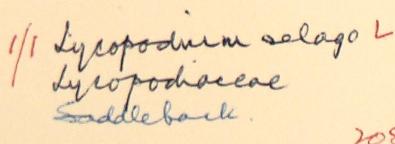 1/1 Lycopodium selago L
Lycopodiaceae
Saddleback.
208